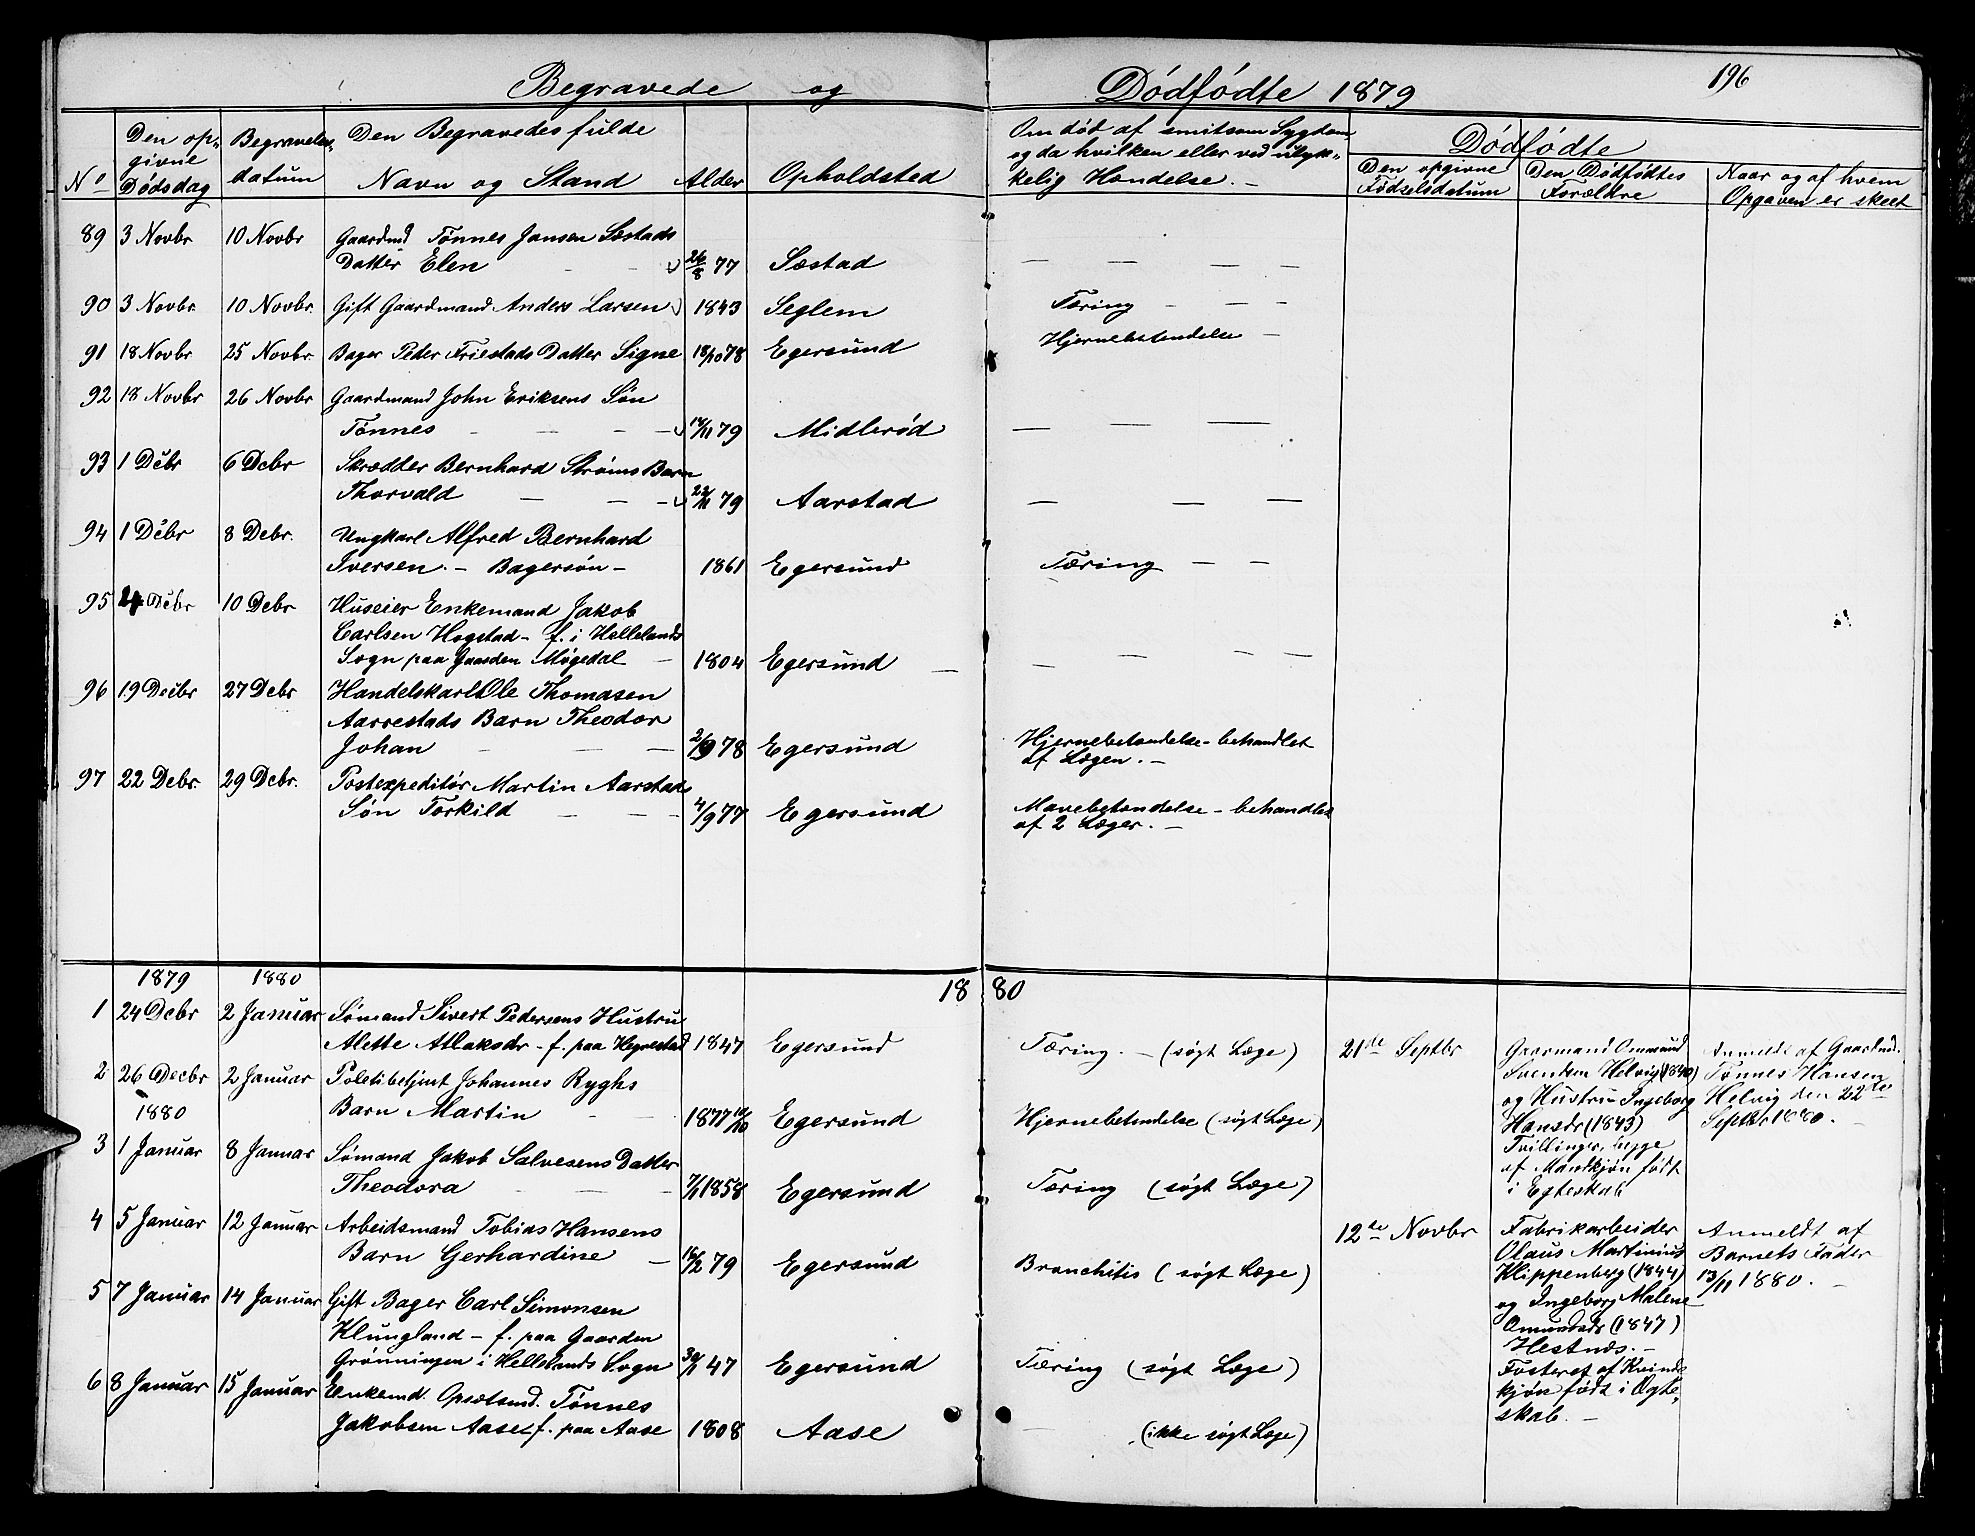 Begravede og Dødfødte 1879 196
No
Den op-
givne
Dødsdag
Begravelses-
datum
Den Begravedes fulde
Navn og Stand
Alder
Opholdsted
Om død af smitsom Sygdom
og da hvilken eller ved ulyk-
kelig Hændelse. -
Dødfødte
Den opgivne
Fødselsdatum
Den Dødfødtes
Forældre
Naar og af hvem
Opgaven er skeet
89 3 Novbr 10 Novbr Gaardmd Tønnes Jansen Sæstads
Datter Elen 26/8 77 Sæstad
90 3 Novbr. 10 Novbr. Gift Gaardmand Anders Larsen 1843 Seglem Tæring
91 18 Novbr 25 Novbr. Bager Peder Friestads Datter Signe 18/10 78 Egersund Hjernebetændelse -
92 18 Novbr 26 Novbr Gaardmand John Eriksens Søn
Tønnes 14/11 79 Midlerød
93 1 Dcbr 6 Dcbr Skrædder Bernhard Strøms Barn
Thorvald 22/11 79 Aarstad
94 1 Dcbr 8 Dcbr. Ungkarl Alfred Bernhard
Iversen. - Bagersøn - 1861 Egersund Tæring
95 Dcbr 10 Dcbr Huseier Enkemand Jakob
Carlsen Hogstad - f. i Hellelands
Sogn paa Gaarden Møgedal 1804 Egersund
96 19 Decbr 27 Dcbr Handelskarl Ole Thomasen
Aarrestads Barn Theodor
Johan 2/9 78 Egersund Hjernebetændelse - behandlet
af Lægen. -
97 22 Dcbr. 29 Dcbr. Postexpeditør Martin Aarstads
Søn Torkild 4/9 77 Egersund Mavebetændelse - behandlet
af 2 Læger. -
1879 1880
1880
1 24 Dcbr 2 Januar Sømand Sivert Pedersens Hustru
Alette Atlaksdr - f. paa Hegrestad 1847 Egersund Tæring. - (søgt Læge)
2 26 Decbr 2 Januar Politibetjent Johannes Ryghs
1880 Barn Martin 1877 Egersund Hjernebetændelse (søgt Læge)
3 1 Januar 8 Januar Sømand Jakob Salvesens Datter
Theodora 7/1 1858 Egersund Tæring (søgt Læge)
4 5 Januar 12 Januar Arbeidsmand Tobias Hansens
Barn Gerhardine 16/2 79 Egersund Bronchitis (søgt Læge)
5 7 Januar 14 Januar Gift Bager Carl Simonsen
Klungland - f. paa Gaarden
Grønningen i Hellelands Sogn 30/1 47 Egersund Tæring (søgt Læge)
6 8 Januar 15 Januar Enkemd. Opsætsmd. Tønnes
Jakobsen Aase f. paa Aase 1808 Aase (ikke søgt Læge)
21de Septbr
Gaarmand Ommund
Svendsen Helvig (1840)
og Hustru Ingeborg
Hansdr (1843)
Tvillinger, begge
af Mandkjøn født
i Egteskab
Anmeldt af Gaardmd.
Tønnes Hansen
Helvig den 22de
Septbr 1880. -
12te Novbr
Fabrikarbeider
Olaus Martinius
Klippenberg (1844)
og Ingeborg Malene
Omundsdr (1847)
Hestnæs. -
Fosteret af Kvinde-
kjøn født i Ægte-
skab. -
Anmeldt af
Barnets Fader
13/11 1880. -